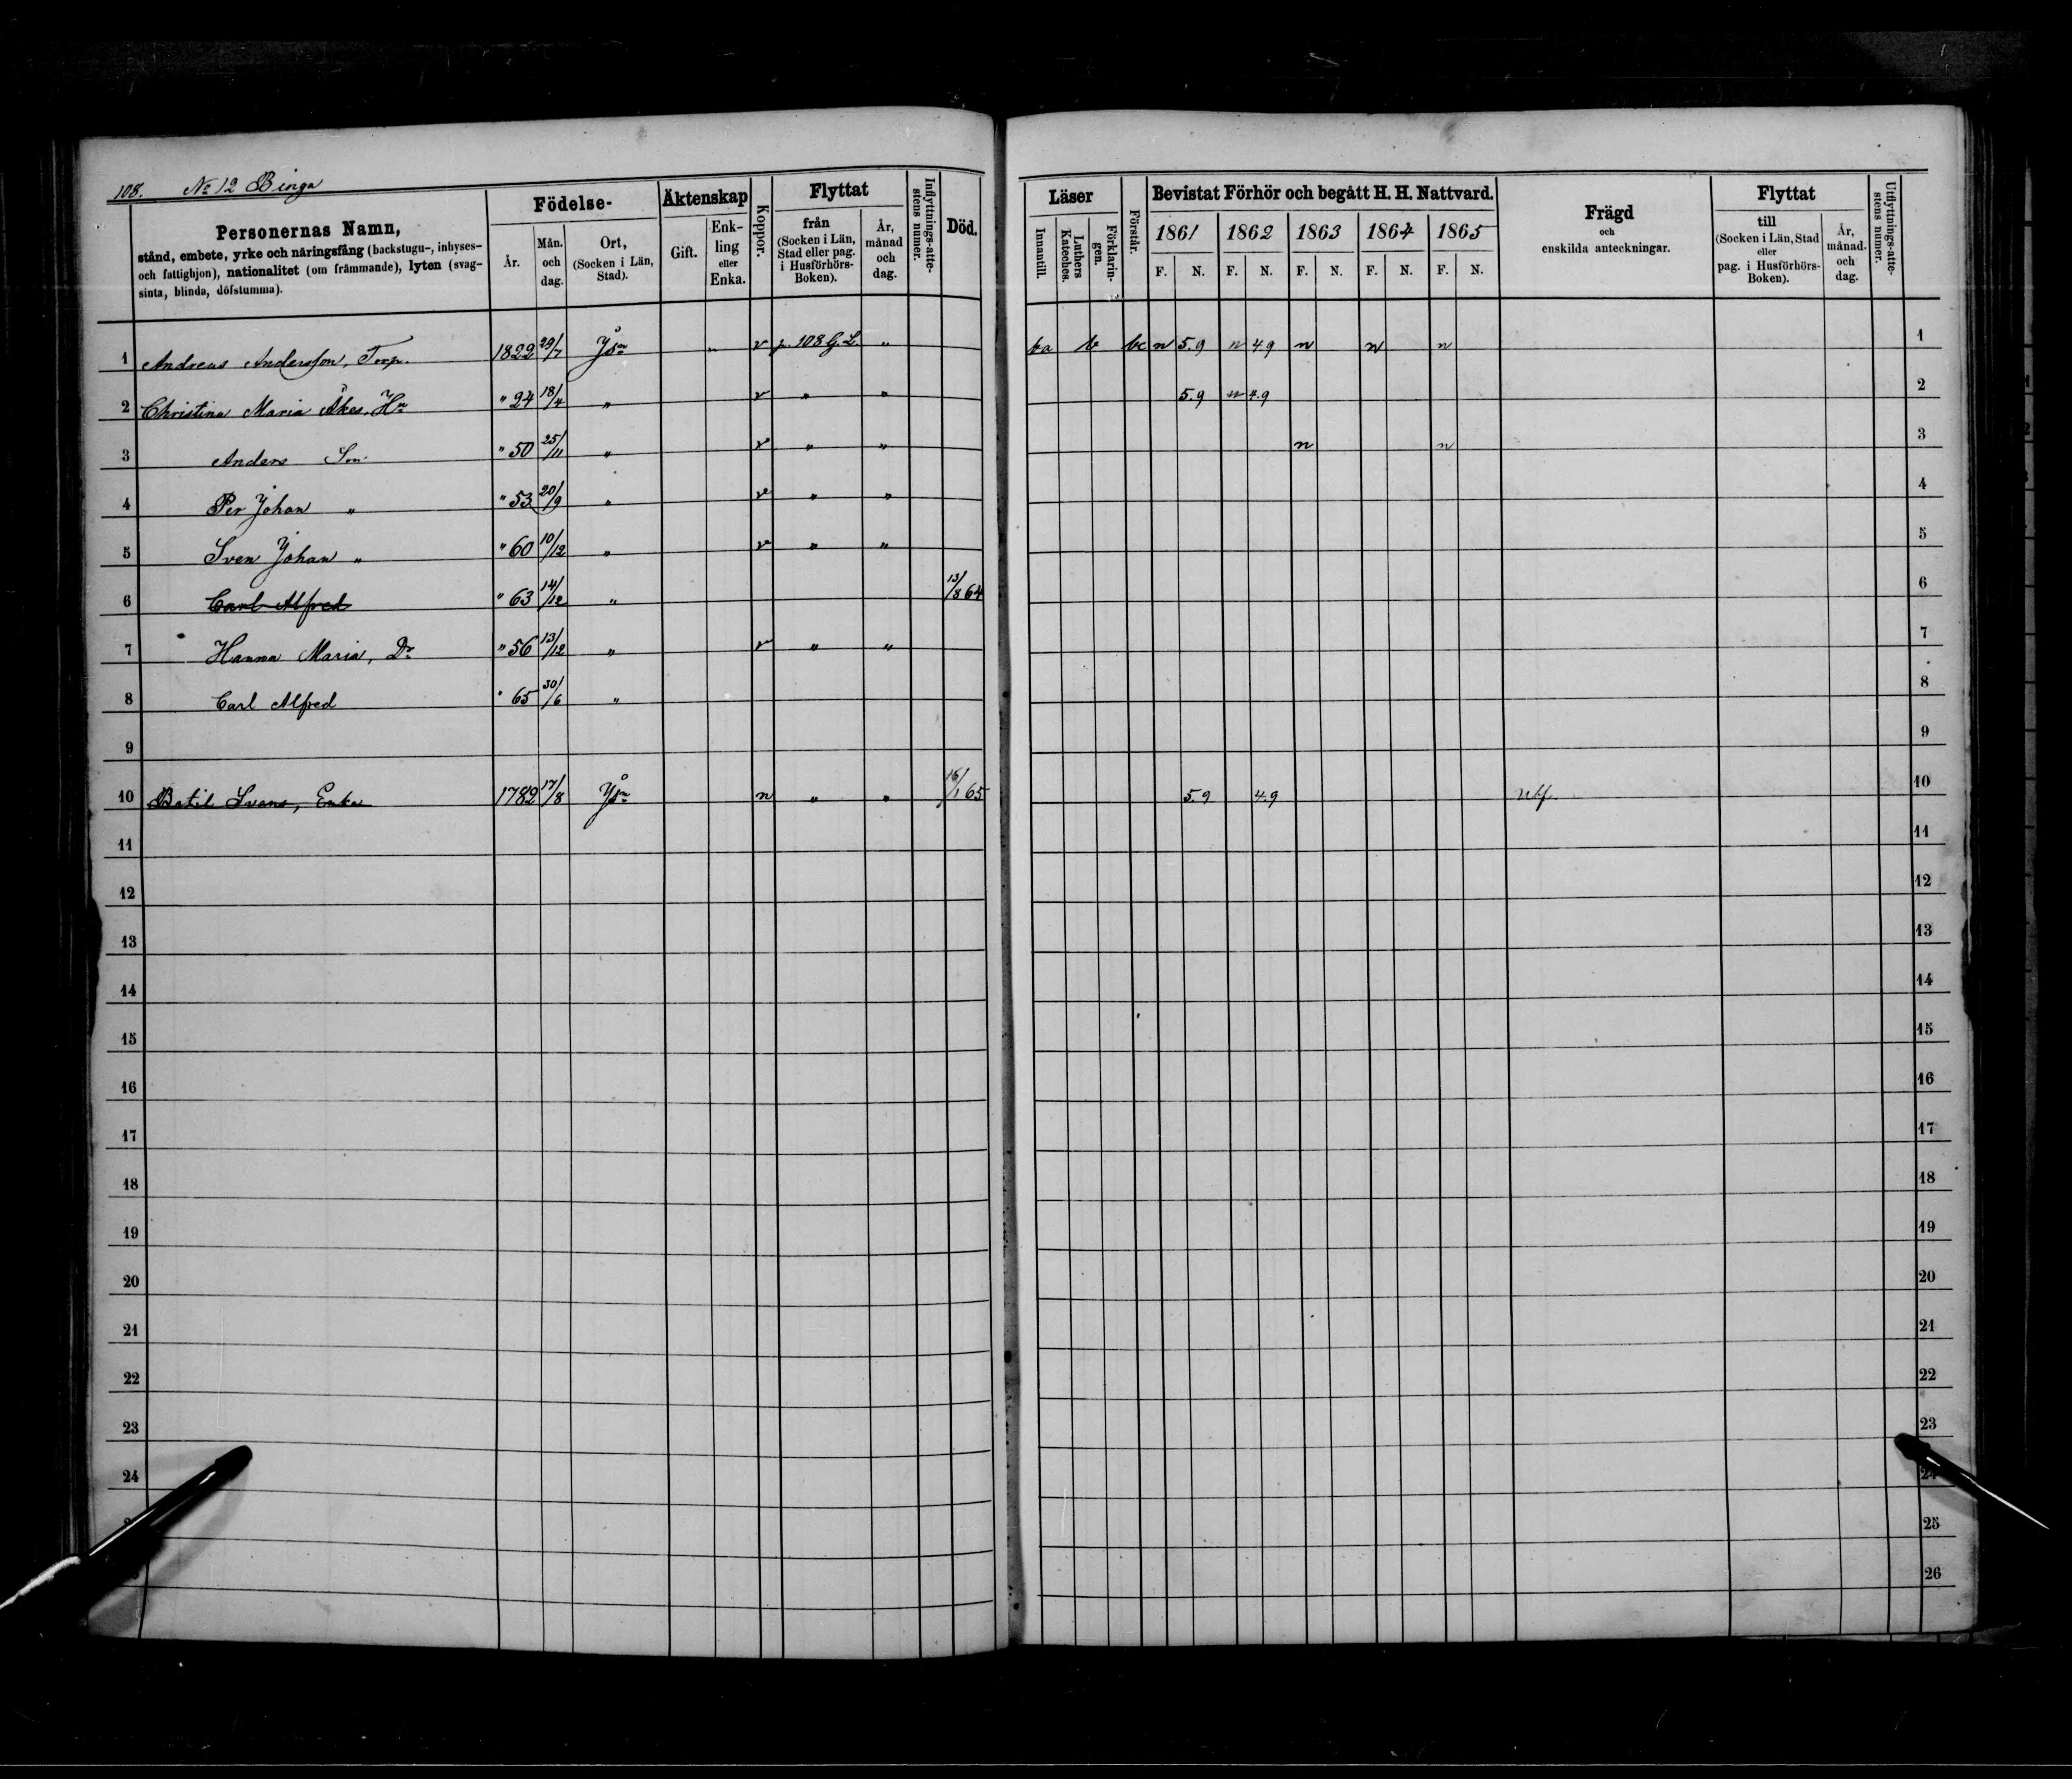 108. No 12 Binga
Personernas Namn,
stånd, embete, yrke och näringsfång (backstugu-, inhyses-
och fattighjon), nationalitet (om främmande), lyten (svag-
sinta, blinda, döfstumma).
Födelse-
År.
Mån. och dag.
Ort, (Socken i Län, Stad).
Äktenskap
Gift.
Enk-ling eller Enka.
Koppor.
Flyttat
från (Socken i Län, Stad eller pag. i Husförhörs-Boken).
År, månad och dag.
Inflyttnings-atte-stens numer.
Död.
Läser
Innantill.
Luthers Kateches.
Förklarin-gen.
Förstår.
Bevistat Förhör och begått H. H. Nattvard.
1861 1862 1863 1864 1865
F. N. F. N. F. N. F. N. F. N.
Frägd
och
enskilda anteckningar.
Flyttat
till (Socken i Län, Stad eller pag. i Husförhörs-Boken).
År, månad. och dag.
Utflyttnings-atte-stens numer.
1 Andreas Andersson, Torp. 1822 29/7 " v p. 108 G. L. " ba b bc n 5.9 n 4.9 n n n 1
2 Christina Maria Åkes. Hu " 24 18/4 " v " " 5.9 n 4.9 2
3 Anders Son " 50 25/11 " v " " n n 3
4 Per Johan " " 53 20/9 " v " " 4
5 Sven Johan " " 60 10/12 " v " " 5
6 Carl Alfred " 63 14/12 " 13/8 64 6
7 Hanna Maria, Dr " 56 13/12 " v " " 7
8 Carl Alfred " 65 30/6 " 8
9 9
10 Botil Svens, Enka 1782 17/8 n " " 16/1 65 5.9 4.9 10
11 11
12 12
13 13
14 14
15 15
16 16
17 17
18 18
19 19
20 20
21 21
22 22
23 23
24 24
25
26